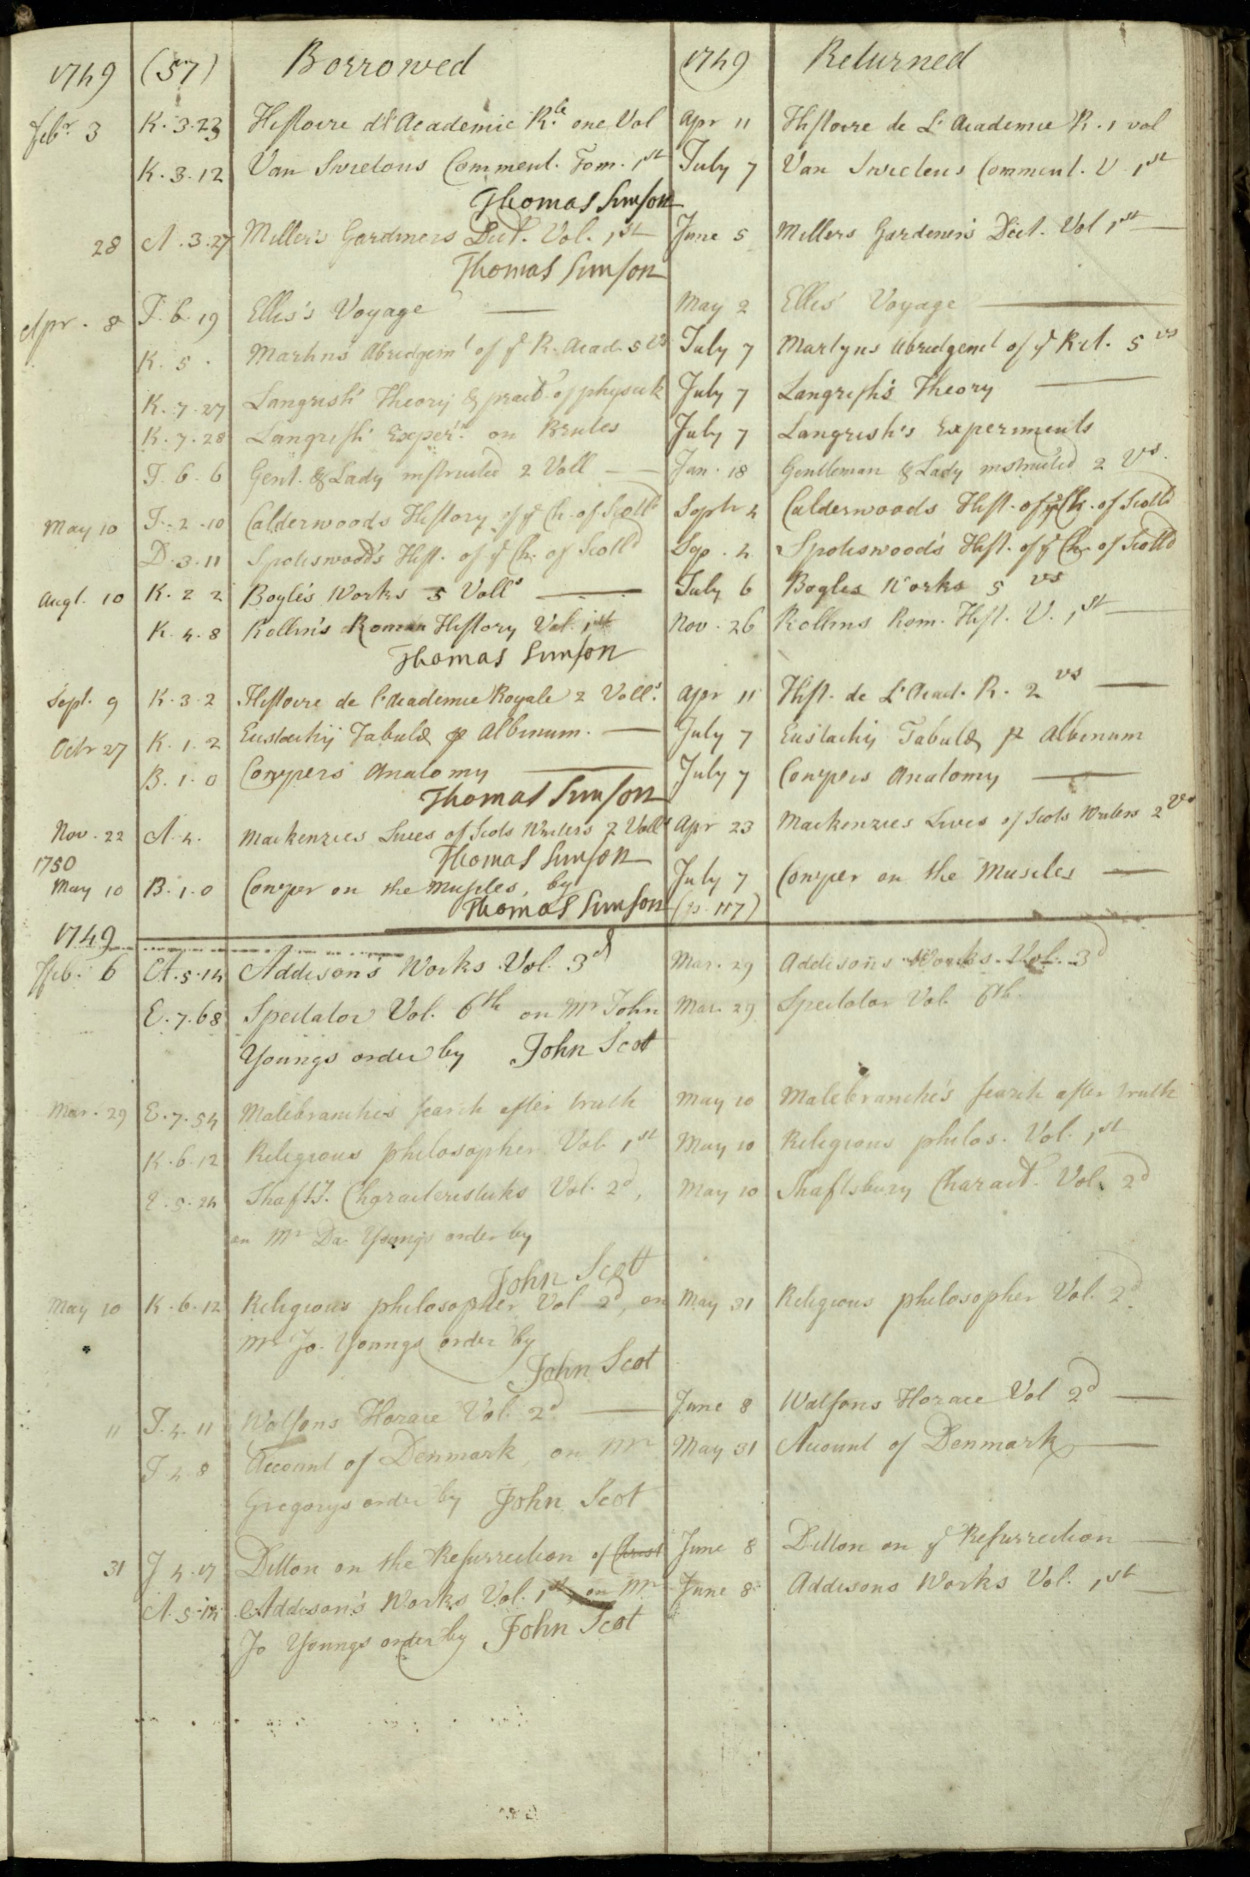 1749 (57) Borrowed 1749 Returned
Febr. 3 K.3.23 Histoire d l'Academie R.le one Vol Apr 11 Histoire de L'Academie R. 1 vol
K.3.12 Van Swietens Comment. Tom. 1st July 7 Van Swietens Comment. V. 1st
Thomas Simson
28 A.3.27 Miller's Gardiners Dict. Vol. 1st June 5 Millers Gardener's Dict. Vol 1st
Thomas Simson
Apr. 8 T.6.19 Ellis's Voyage May 2 Ellis' Voyage
K.5. Martyns Abridgemt of ye R. Acad. 5 vs July 7 Martyns Abridgemt of ye R.A. 5 vs
K.7.27 Langrish' Theory & pract. of physick July 7 Langrish's Theory
K.7.28 Langrish' Exper.ts on Brutes July 7 Langrish's Experiments
T.6.6 Gent. & Lady instructed 2 Voll Jan. 18 Gentleman & Lady instructed 2 Vs.
May 10 T.2.10 Calderwoods History of ye Ch. of Scotld Septr 2 Calderwoods Hist. of ye Ch. of Scotld
D.3.11 Spotiswood's Hist. of ye Ch. of Scotld Sep. 2 Spotiswood's Hist. of ye Ch. of Scotld
Augt. 10 K.2 2 Boyle's Works 5 Volls July 6 Boyles Works 5 vs
K.4.8 Rollin's Roman History Vol. 1st Nov. 26 Rollins Rom. Hist. V. 1st
Thomas Simson
Sept. 9 K.3.2 Histoire de l'Academie Royale 2 Volls. Apr 11 Hist. de L'Acad. R. 2 vs
Octr 27 K.1.2 Eustachij Tabulæ p Albinum. July 7 Eustachij Tabulæ p Albinum
B.1.0 Cowpers Anatomy July 7 Cowpers Anatomy
Thomas Simson
Nov. 22 A.4. Mackenzies Lives of Scots Writers 2 Volls Apr 23 Mackenzies Lives of Scots Writers 2 Vs
Thomas Simson
1750
May 10 B.1.0 Cowper on the Muscles, by July 7 Cowper on the Muscles
Thomas Simson (p. 117)
1749
Feb. 6 A.5.14 Addison's Works Vol. 3d Mar. 29 Addisons Works. Vol. 3d
E.7.68 Spectator Vol. 6th on Mr John Mar. 29 Spectator Vol. 6th.
Youngs order by John Scot
Mar. 29 E.7.54 Malebranche's search after truth May 10 Malebranche's search after truth
K.6.12 Religious philosopher Vol. 1st May 10 Religious philos. Vol. 1st
E.5.24 Shafts. Characteristicks Vol. 2d, May 10 Shaftsbury Charact. Vol. 2d
on Mr Da. Young's order by
John Scott
May 10 K.6.12 Religious philosopher Vol 2d, on May 31 Religious philosopher Vol. 2d
Mr Jo. Youngs order by
John Scot
11 T.4.11 Watsons Horace Vol. 2d June 8 Watsons Horace Vol 2d
T.4.8 Account of Denmark, on Mr May 31 Account of Denmark
Gregorys order by John Scot
31 J 4.17 Ditton on the Resurrection of Christ June 8 Ditton on ye Resurrection
A.5.14 Addison's Works Vol. 1st on Mr June 8 Addisons Works Vol. 1st
Jo Youngs order by John Scot